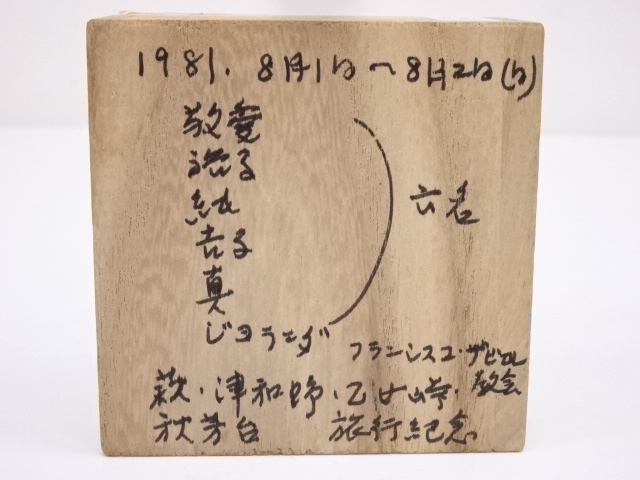 1981. 8月1日〜8月2日(日)
敬愛
浩子
純
吉子
真
ジョランダ
六名
フランシスコ・ザビエル
教会
萩・津和野・乙女峠・
秋芳台 旅行紀念